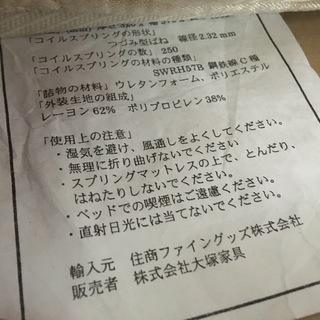 「コイルスプリングの形状」
つづみ型ばね 線径2.32 mm
「コイルスプリングの数」 250
「コイルスプリングの材料の種類」
SWRH57B 鋼鉄線C種
「詰物の材料」ウレタンフォーム、ポリエステル
「外装生地の組成」
レーヨン62% ポリプロピレン38%
「使用上の注意」
・湿気を避け、風通しをよくしてください。
・無理に折り曲げないでください
・スプリングマットレスの上で、とんだり、
はねたりしないでください。
・ベッドでの喫煙はご遠慮ください。
・直射日光には当てないでください。
輸入元 住商ファイングッズ株式会社
販売者 株式会社大塚家具